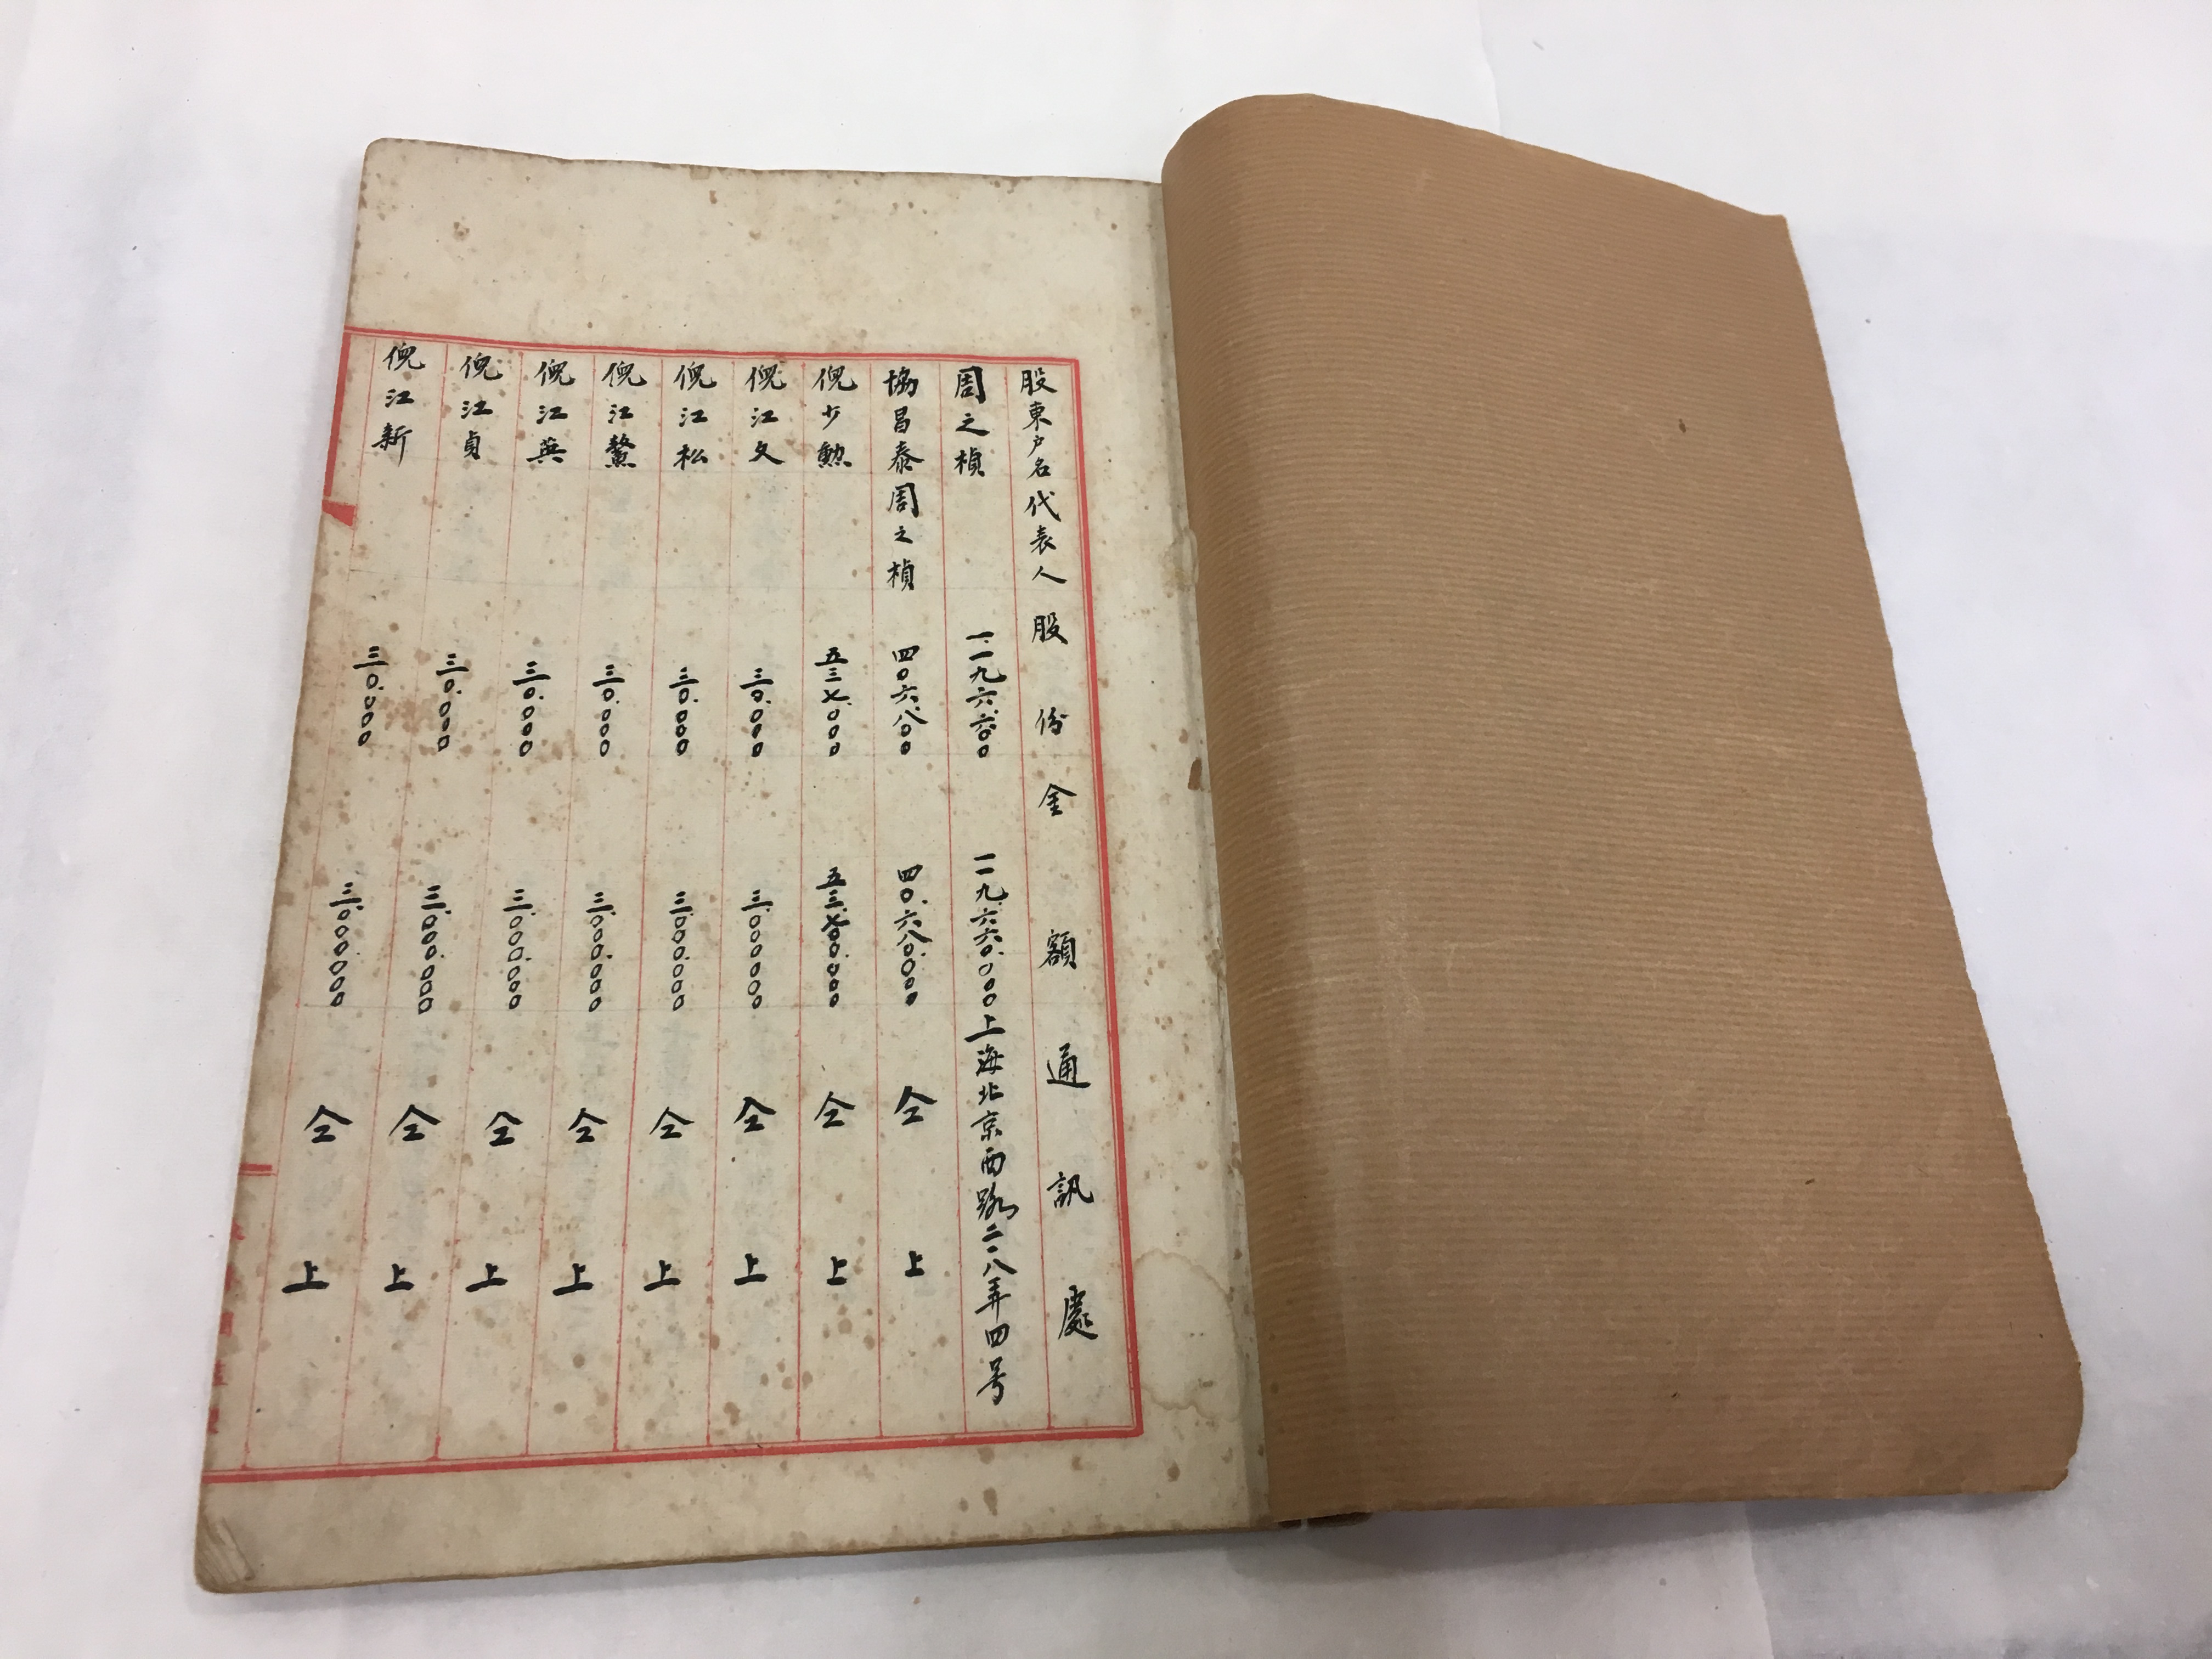 股東户名 代表人 股份 金額 通訊處
周之楨 一.一九六.六〇〇 一一九.六六〇.〇〇〇 上海北京西路二一八弄四号
協昌泰 周之楨 四〇六.八〇〇 四〇.六八〇.〇〇〇 仝上
倪少勲 五三七.〇〇〇 五三.七〇〇.〇〇〇 仝上
倪江文 三〇.〇〇〇 三.〇〇〇.〇〇〇 仝上
倪江松 三〇.〇〇〇 三.〇〇〇.〇〇〇 仝上
倪江鰲 三〇.〇〇〇 三.〇〇〇.〇〇〇 仝上
倪江英 三〇.〇〇〇 三.〇〇〇.〇〇〇 仝上
倪江貞 三〇.〇〇〇 三.〇〇〇.〇〇〇 仝上
倪江新 三〇.〇〇〇 三.〇〇〇.〇〇〇 仝上